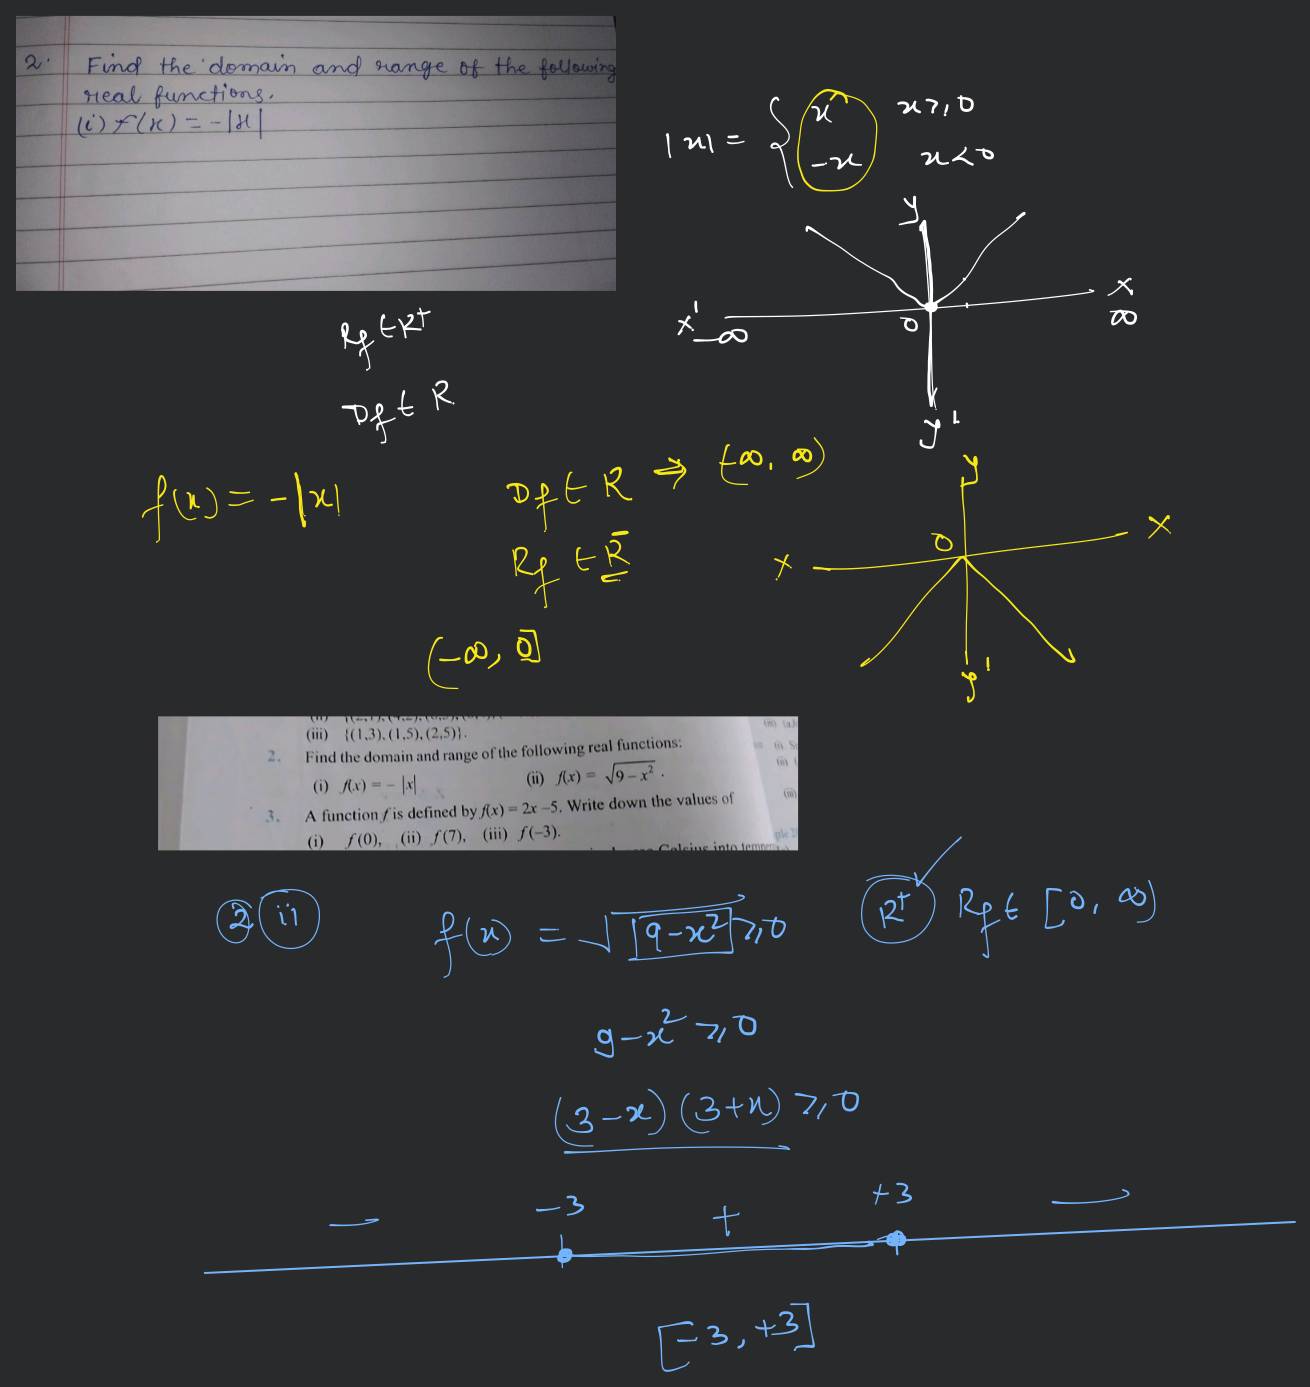 2. Find the domain and range of the following
real functions.
(i) f(x) = -|x|
|x| = { x   x ≥ 0
-x   x < 0
y
x' -∞   0   x ∞
y'
Rf ∈ R+
Df ∈ R
f(x) = -|x|
Df ∈ R ⇒ (-∞, ∞)
Rf ∈ R-
(-∞, 0]
y
x   0   x
y'
(iii) {(1,3), (1,5), (2,5)}.
2. Find the domain and range of the following real functions:
(i) f(x) = - |x|   (ii) f(x) = √9 – x² .
3. A function f is defined by f(x) = 2x –5. Write down the values of
(i) f (0),   (ii) f (7),   (iii) f (–3).
Celcius into
2 ii   f(x) = √9-x² ≥ 0   R+   Rf ∈ [0, ∞)
9-x² ≥ 0
(3-x) (3+x) ≥ 0
-   -3   +   +3   -
[-3, +3]